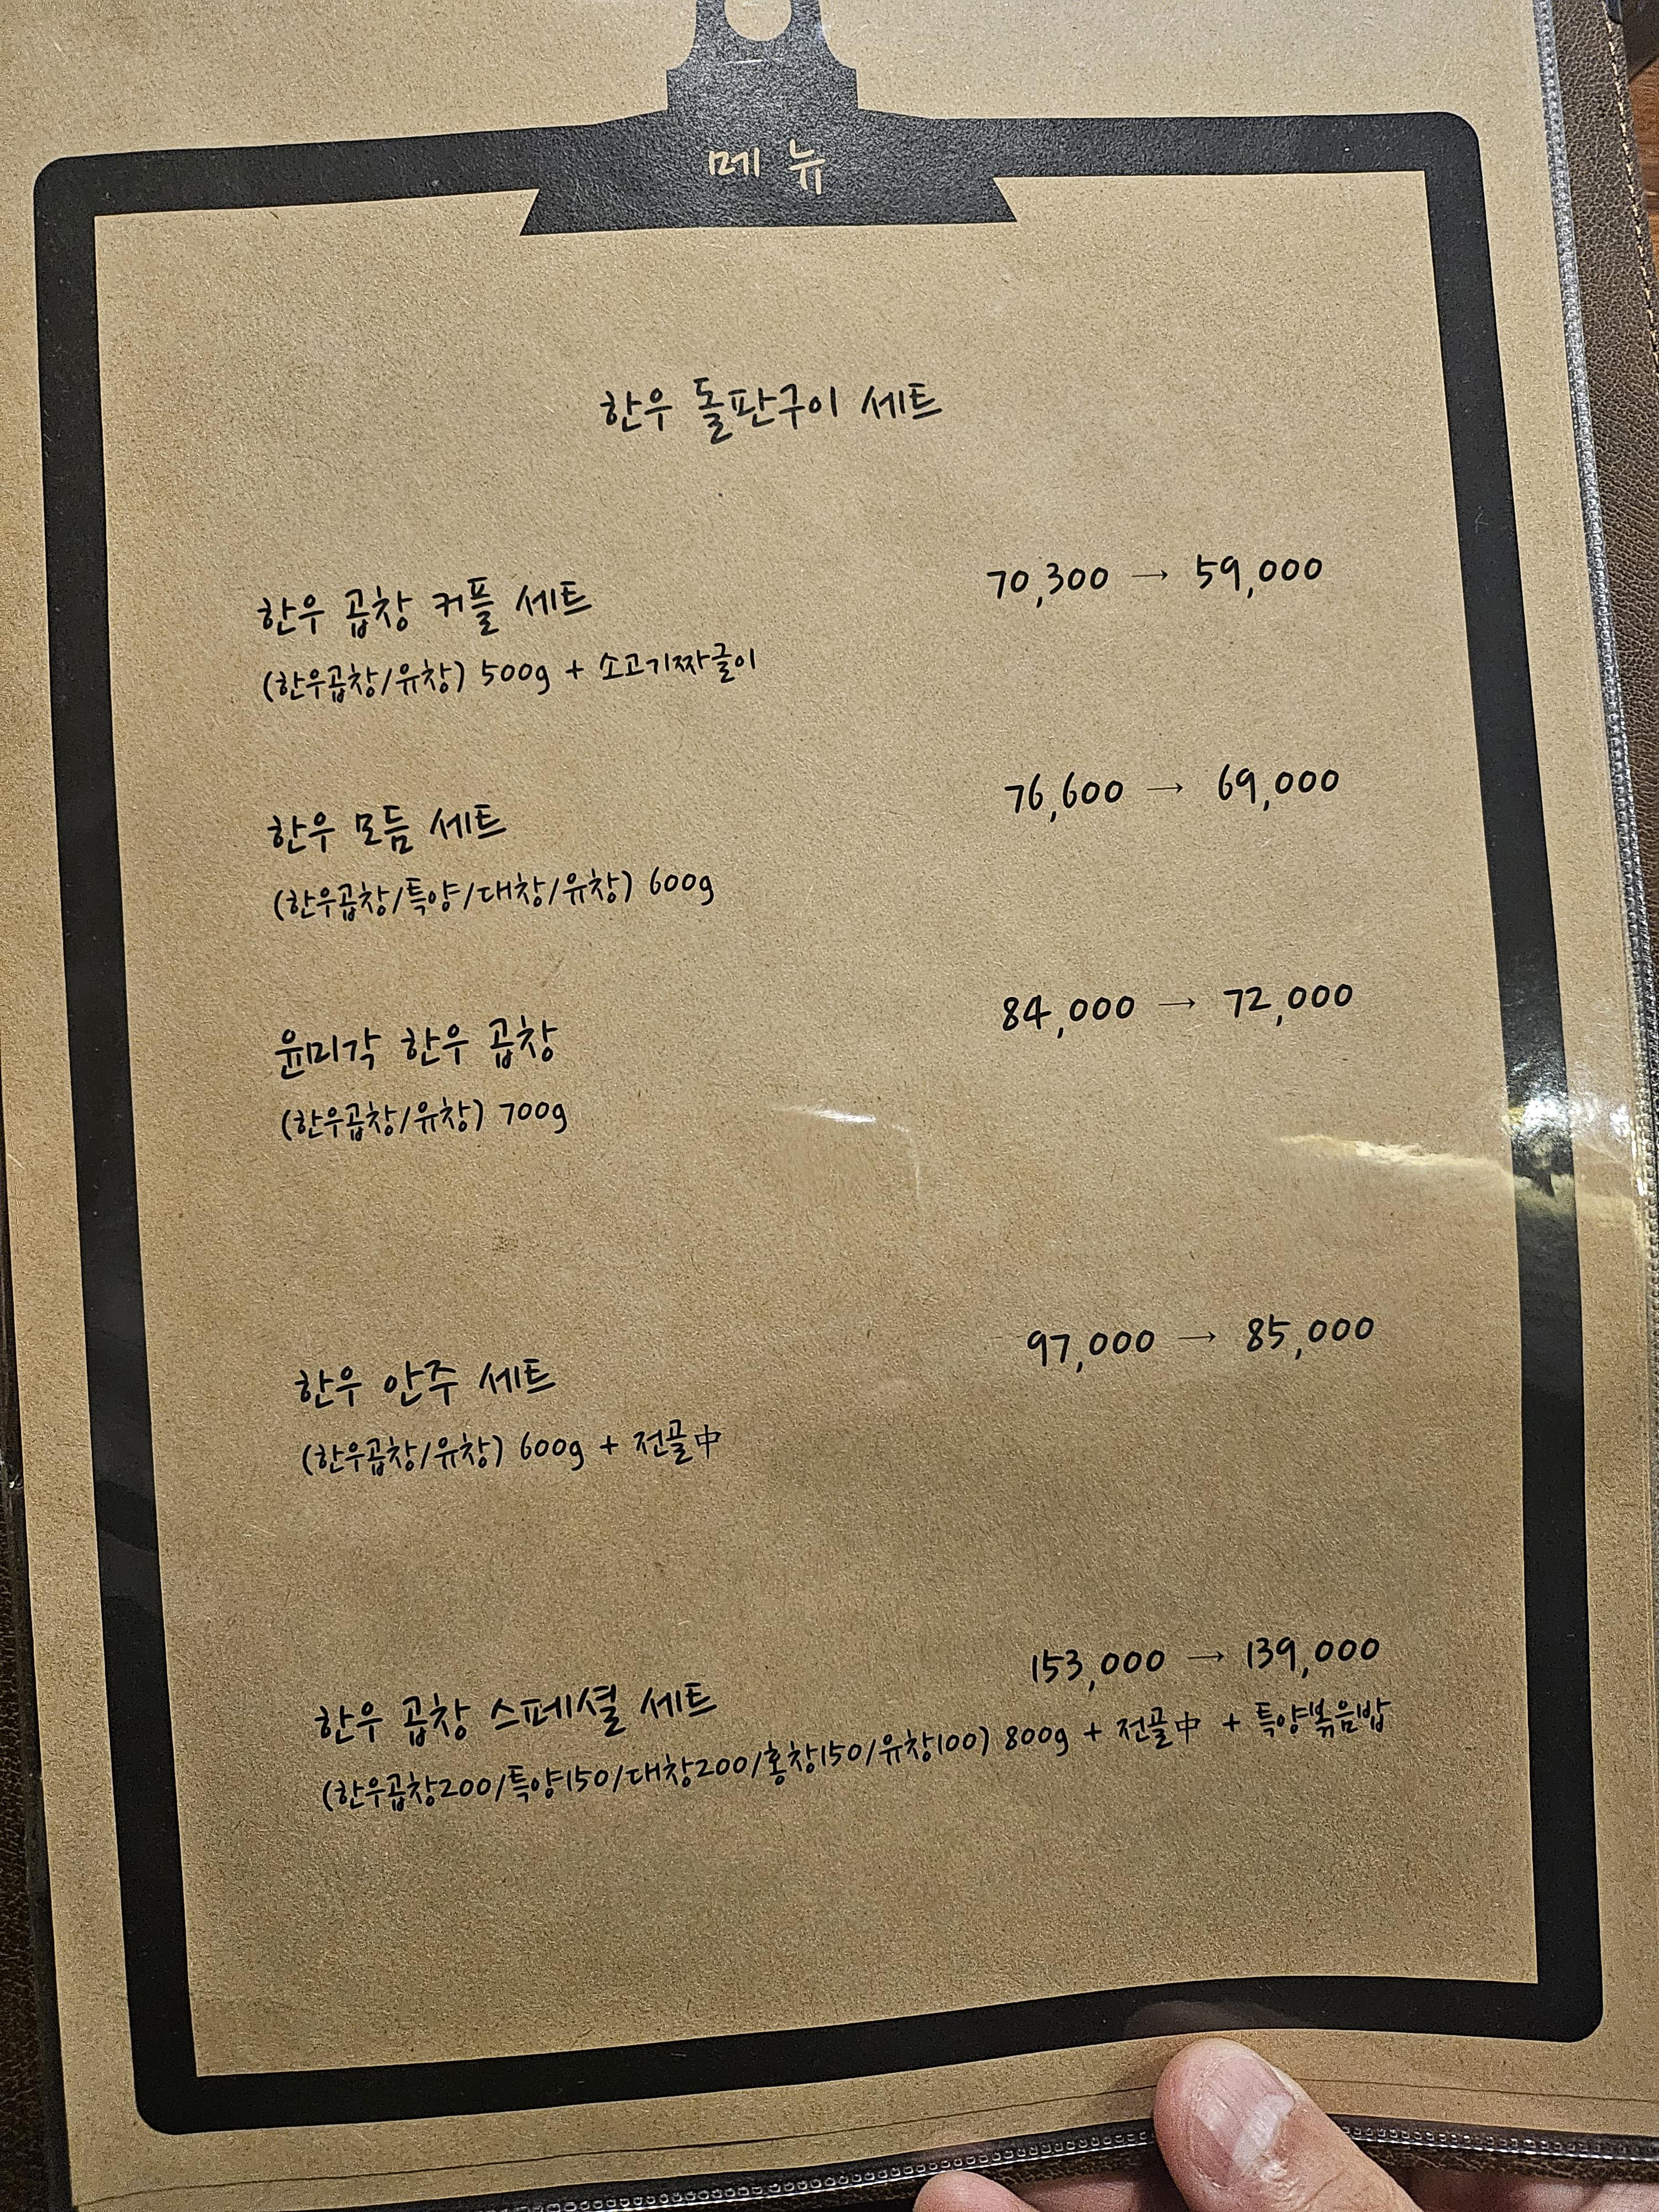 메뉴
한우 돌판구이 세트
한우 곱창 커플 세트 70,300 → 59,000
(한우곱창/유창) 500g + 소고기짜글이
한우 모듬 세트 76,600 → 69,000
(한우곱창/특양/대창/유창) 600g
윤미각 한우 곱창 84,000 → 72,000
(한우곱창/유창) 700g
한우 안주 세트 97,000 → 85,000
(한우곱창/유창) 600g + 전골中
한우 곱창 스페셜 세트 153,000 → 139,000
(한우곱창200/특양150/대창200/홍창150/유창100) 800g + 전골中 + 특양볶음밥